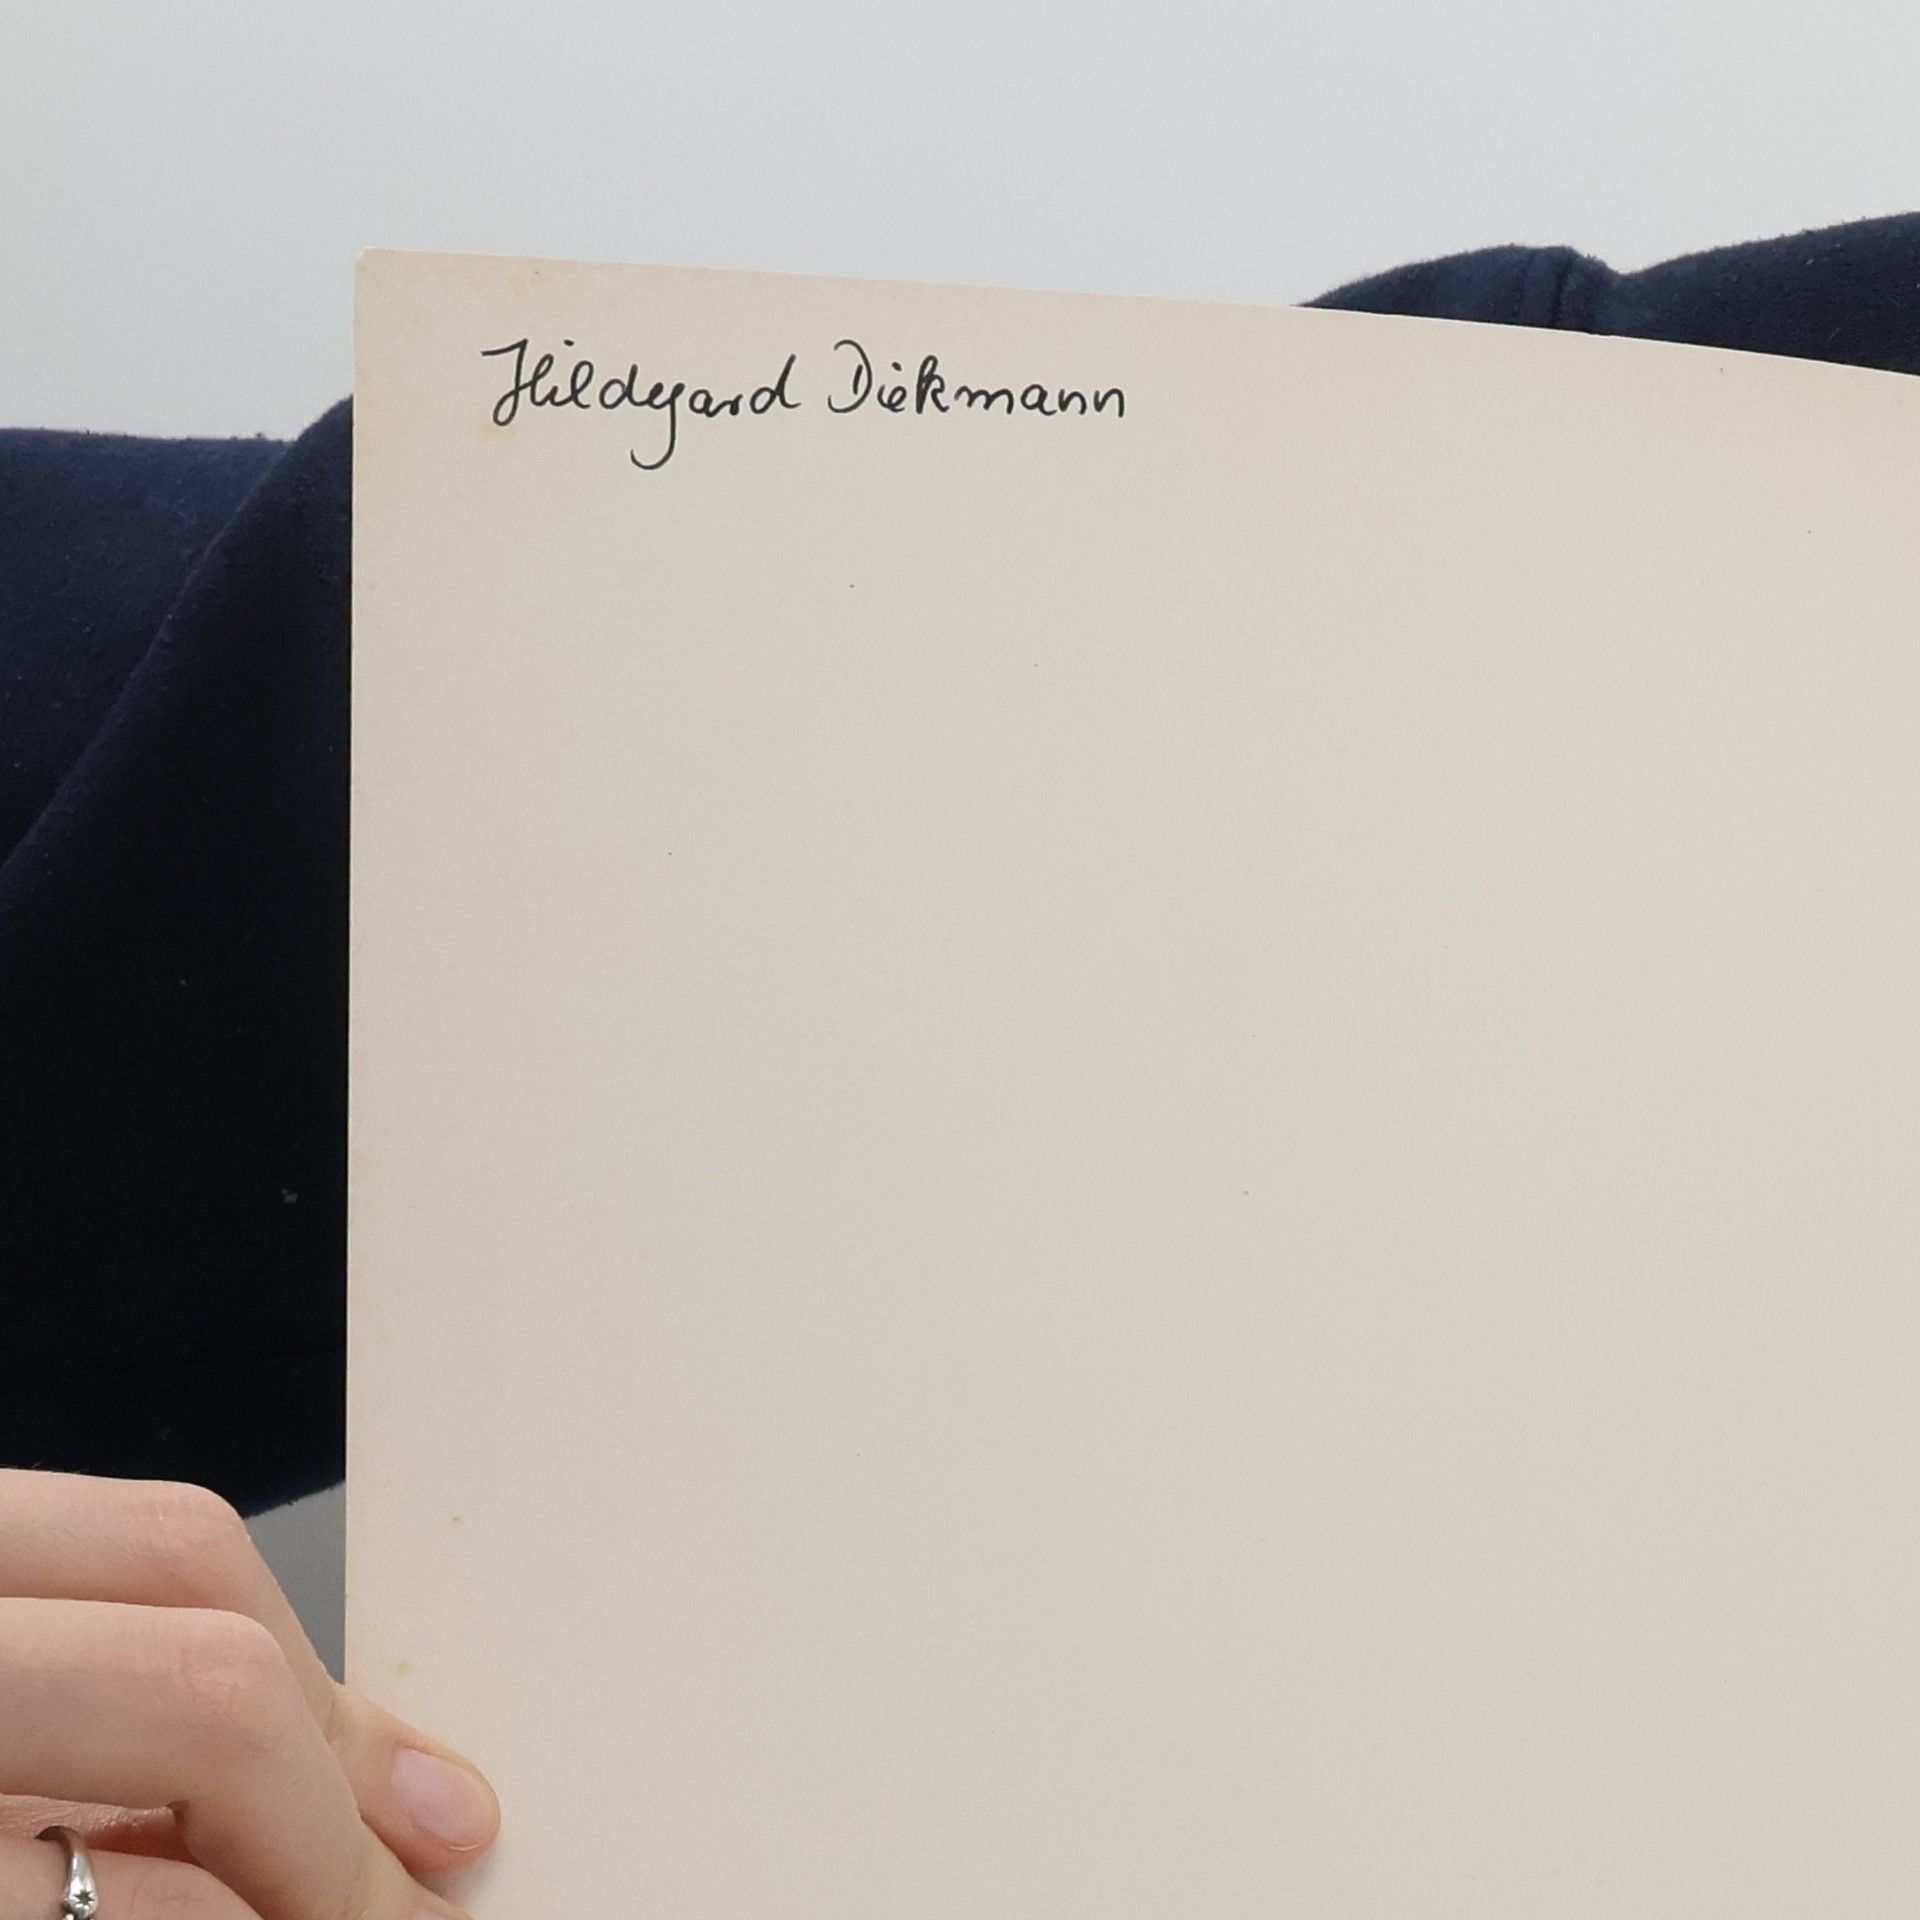 Hildegard Diekmann